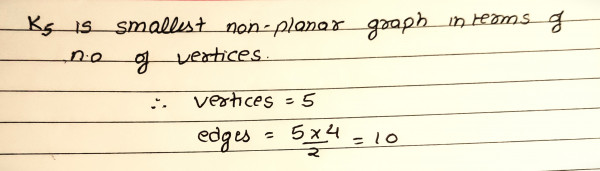 K5 is smallest non-planar graph in terms of
n.o of vertices.
∴ vertices = 5
edges = 5x4/2 = 10